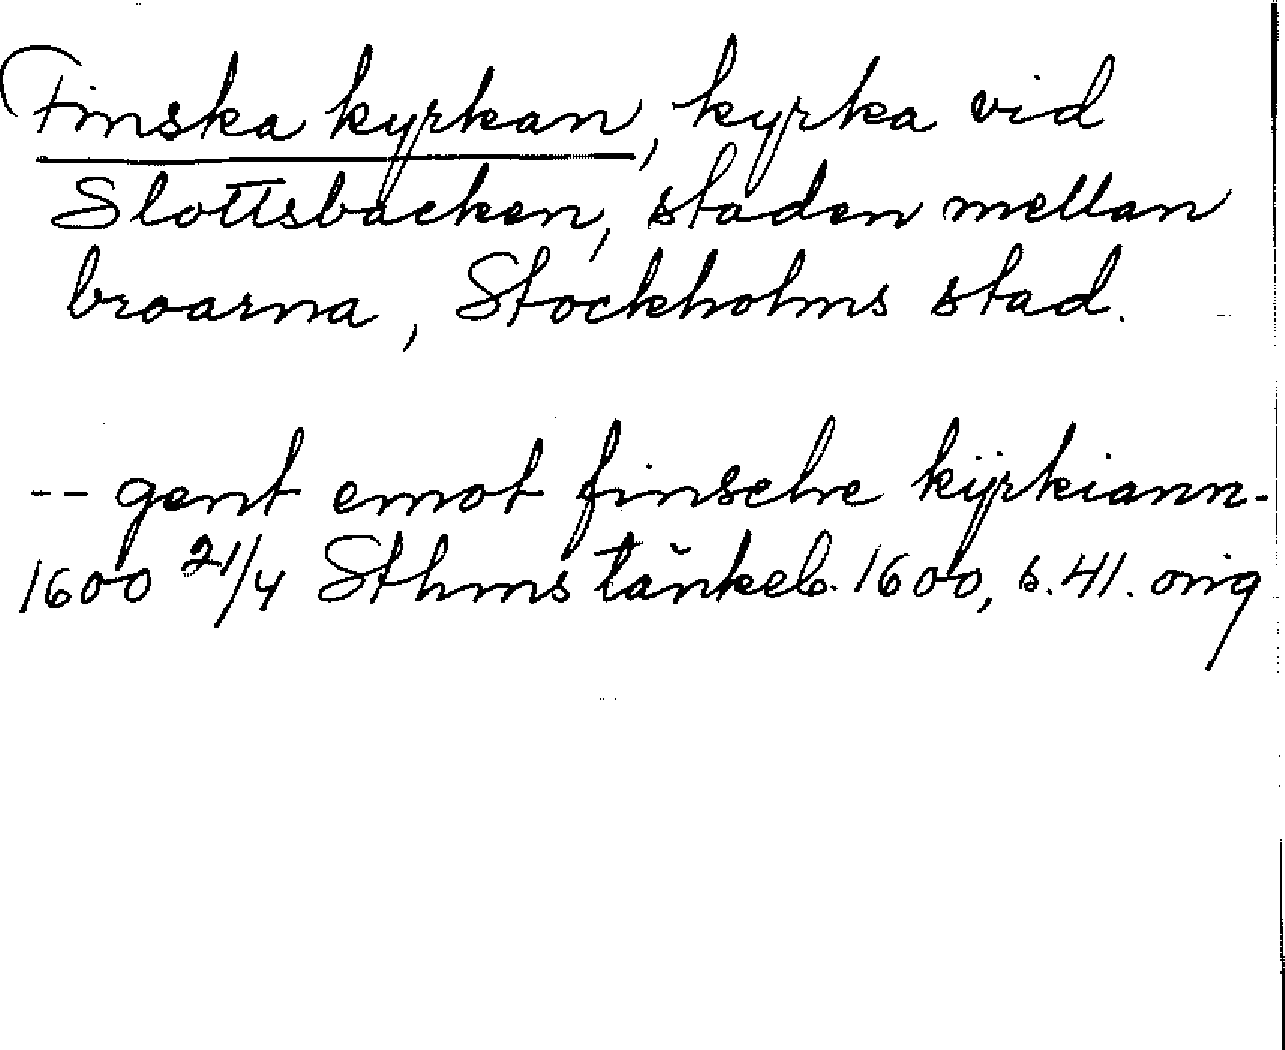 Finska kyrkan, kyrka vid
Slottsbacken, staden mellan
broarna, Stockholms stad.
-- gent emot finsche kÿrkiann-
1600 21/4 Sthms tänkeb. 1600, s. 41. orig